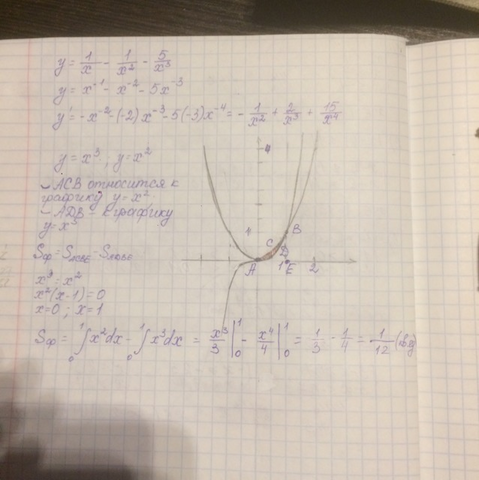 y = 1/x - 1/x² - 5/x³
y = x⁻¹ - x⁻² - 5x⁻³
y' = -x⁻² - (-2)x⁻³ - 5(-3)x⁻⁴ = - 1/x² + 2/x³ + 15/x⁴
y = x³ ; y = x²
ACB относится к
графику y = x²
ADB - к графику
y = x³
x³ = x²
x²(x-1) = 0
x = 0 ; x = 1
Sф = ₀∫¹ x²dx - ₀∫¹ x³dx = x³/3 |₀¹ - x⁴/4 |₀¹ = 1/3 - 1/4 = 1/12
4
1
C
B
D
A
1
E
2